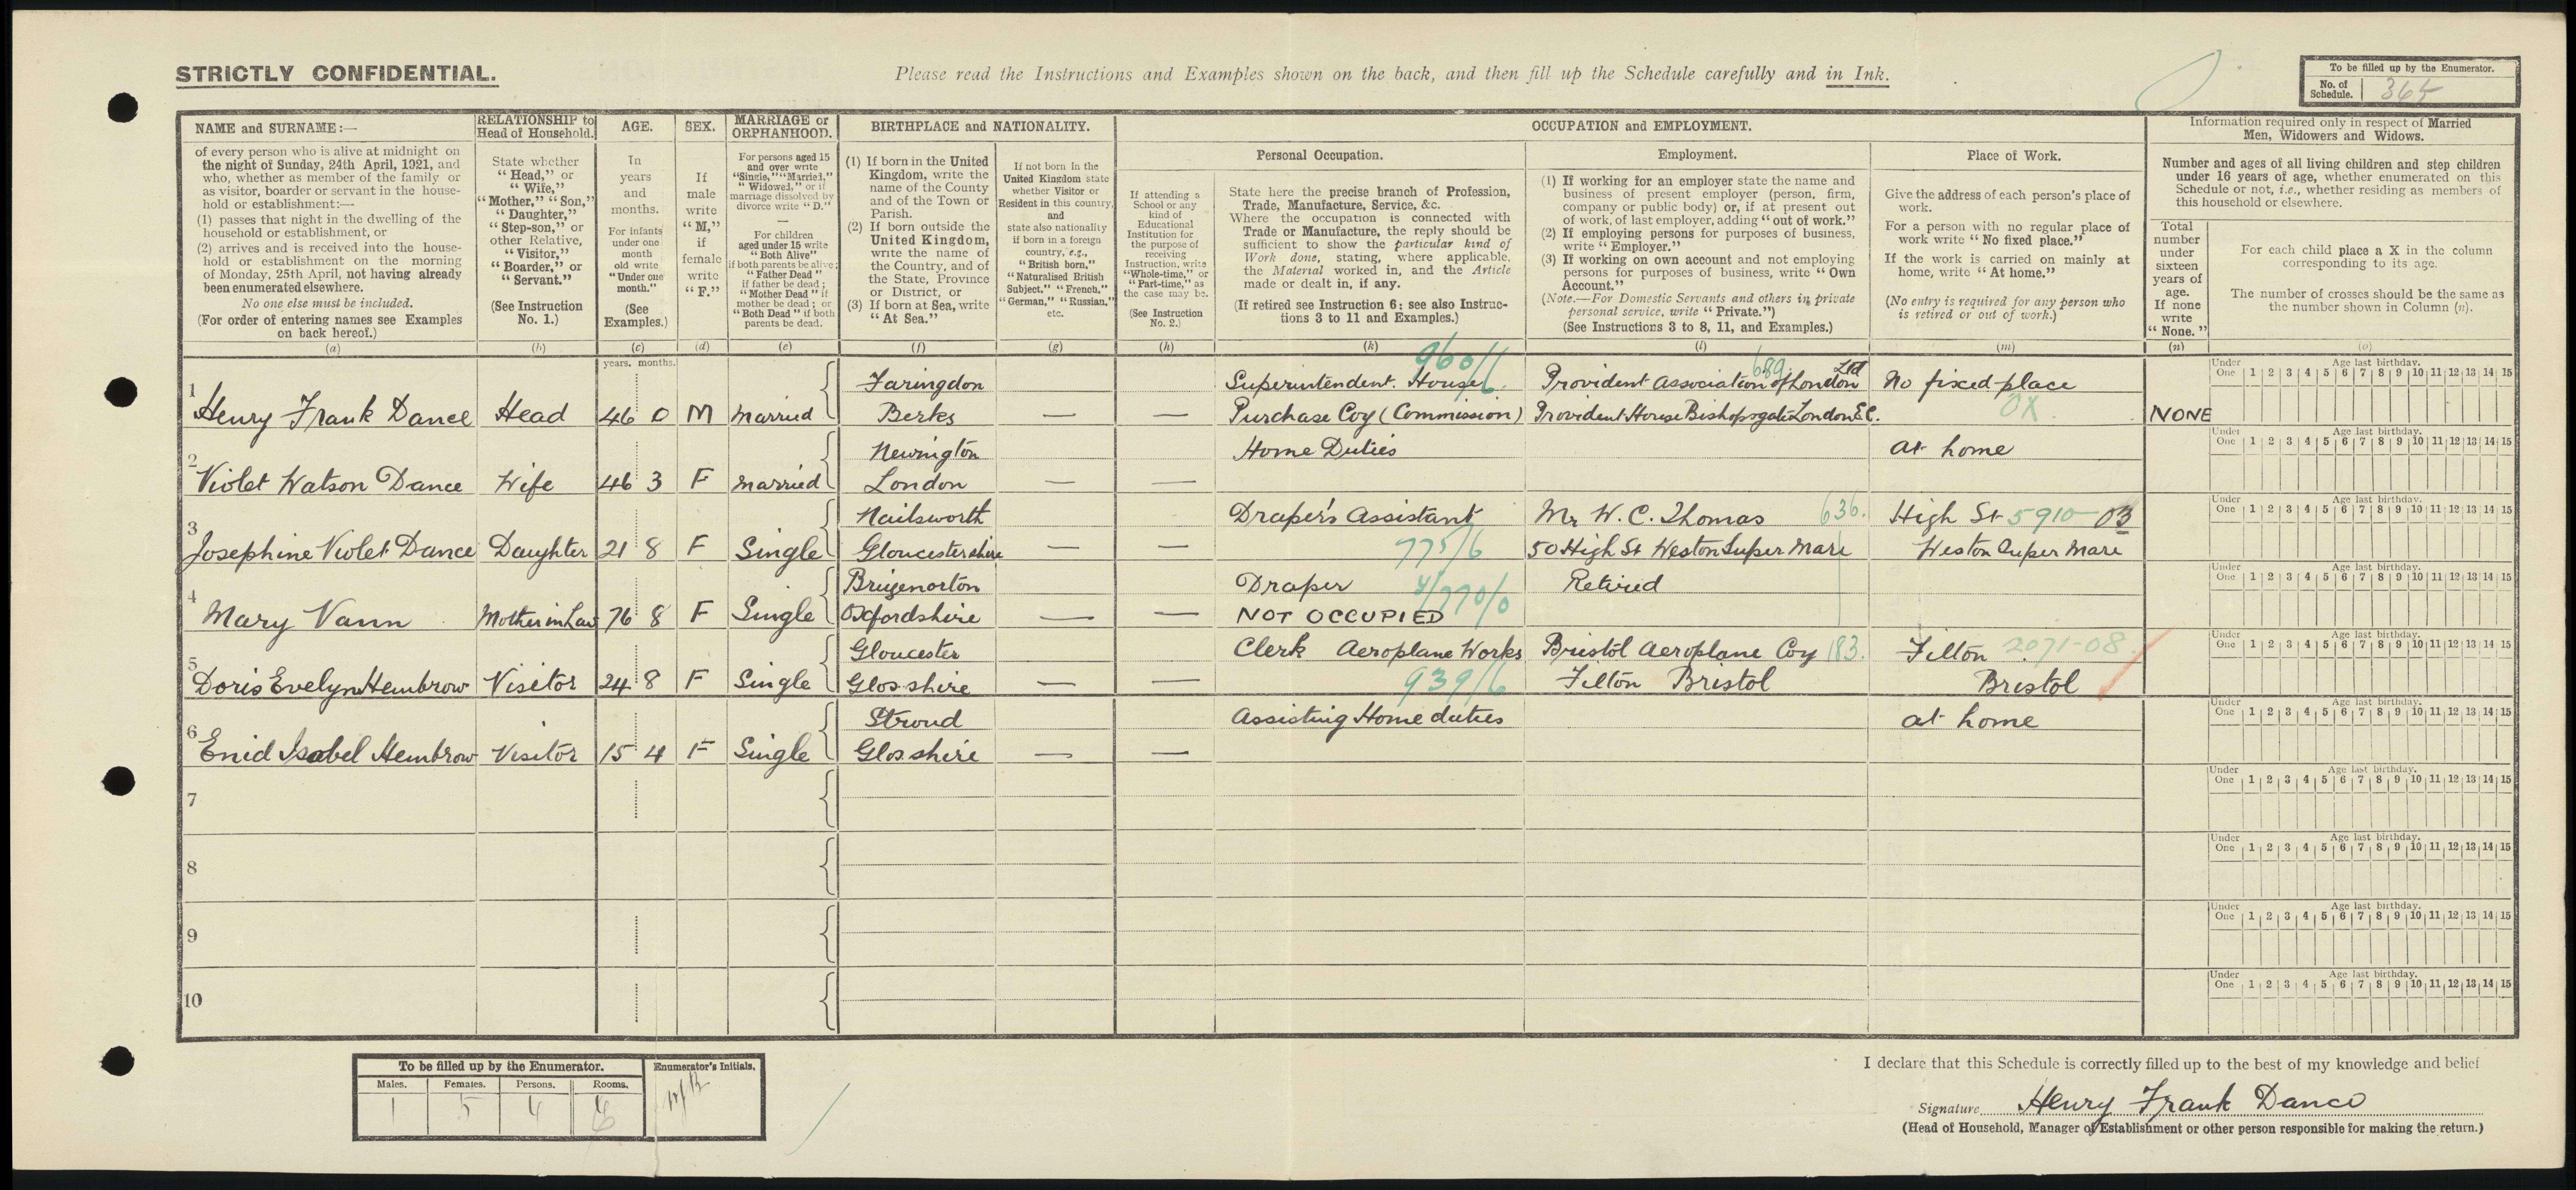 STRICTLY CONFIDENTIAL.
Please read the Instructions and Examples shown on the back, and then fill up the Schedule carefully and in Ink.
To be filled up by the Enumerator.
No. of Schedule. 365
NAME and SURNAME:—
of every person who is alive at midnight on
the night of Sunday, 24th April, 1921, and
who, whether as member of the family or
as visitor, boarder or servant in the house-
hold or establishment:—
(1) passes that night in the dwelling of the
household or establishment, or
(2) arrives and is received into the house-
hold or establishment on the morning
of Monday, 25th April, not having already
been enumerated elsewhere.
No one else must be included.
(For order of entering names see Examples
on back hereof.)
(a)
RELATIONSHIP to
Head of Household.
State whether
"Head," or
"Wife,"
"Mother," "Son,"
"Daughter,"
"Step-son," or
other Relative,
"Visitor,"
"Boarder," or
"Servant."
(See Instruction
No. 1.)
(b)
AGE.
In
years
and
months.
For infants
under one
month
old write
"Under one
month."
(See
Examples.)
(c)
SEX.
If
male
write
"M,"
if
female
write
"F."
(d)
MARRIAGE or
ORPHANHOOD.
For persons aged 15
and over write
"Single," "Married,"
"Widowed," or if
marriage dissolved by
divorce write "D."
—
For children
aged under 15 write
"Both Alive"
if both parents be alive;
"Father Dead"
if father be dead;
"Mother Dead" if
mother be dead; or
"Both Dead" if both
parents be dead.
(e)
BIRTHPLACE and NATIONALITY.
(1) If born in the United
Kingdom, write the
name of the County
and of the Town or
Parish.
(2) If born outside the
United Kingdom,
write the name of
the Country, and of
the State, Province
or District, or
(3) If born at Sea, write
"At Sea."
(f)
If not born in the
United Kingdom state
whether Visitor or
Resident in this country,
and
state also nationality
if born in a foreign
country, e.g.,
"British born,"
"Naturalised British
Subject," "French,"
"German," "Russian,"
etc.
(g)
OCCUPATION and EMPLOYMENT.
If attending a
School or any
kind of
Educational
Institution for
the purpose of
receiving
Instruction, write
"Whole-time," or
"Part-time," as
the case may be.
(See Instruction
No. 2.)
(h)
Personal Occupation.
State here the precise branch of Profession,
Trade, Manufacture, Service, &c.
Where the occupation is connected with
Trade or Manufacture, the reply should be
sufficient to show the particular kind of
Work done, stating, where applicable,
the Material worked in, and the Article
made or dealt in, if any.
(If retired see Instruction 6; see also Instruc-
tions 3 to 11 and Examples.)
(k)
Employment.
(1) If working for an employer state the name and
business of present employer (person, firm,
company or public body) or, if at present out
of work, of last employer, adding "out of work."
(2) If employing persons for purposes of business,
write "Employer."
(3) If working on own account and not employing
persons for purposes of business, write "Own
Account."
(Note.—For Domestic Servants and others in private
personal service, write "Private.")
(See Instructions 3 to 8, 11, and Examples.)
(l)
Place of Work.
Give the address of each person's place of
work.
For a person with no regular place of
work write "No fixed place."
If the work is carried on mainly at
home, write "At home."
(No entry is required for any person who
is retired or out of work.)
(m)
Information required only in respect of Married
Men, Widowers and Widows.
Number and ages of all living children and step children
under 16 years of age, whether enumerated on this
Schedule or not, i.e., whether residing as members of
this household or elsewhere.
Total
number
under
sixteen
years of
age.
If none
write
"None."
(n)
For each child place a X in the column
corresponding to its age.
The number of crosses should be the same as
the number shown in Column (n).
(o)
years. months.
1 Faringdon Superintendent. House 960/6 Provident Association of London Ltd 689 No fixed place
Henry Frank Dance Head 46 0 M Married Berks — — Purchase Coy (Commission) Provident House Bishopsgate London E.C. OX NONE
Under One 1 2 3 4 5 6 7 8 9 10 11 12 13 14 15 Age last birthday.
2 Newington Home Duties at home
Violet Watson Dance Wife 46 3 F Married London — —
Under One 1 2 3 4 5 6 7 8 9 10 11 12 13 14 15 Age last birthday.
3 Nailsworth Draper's Assistant Mr W. C. Thomas 636. High St 5910-03
Josephine Violet Dance Daughter 21 8 F Single Gloucestershire — — 775/6 50 High St Weston Super Mare Weston Super Mare
Under One 1 2 3 4 5 6 7 8 9 10 11 12 13 14 15 Age last birthday.
4 Brizenorton Draper Y/770/0 Retired
Mary Vann Mother in Law 76 8 F Single Oxfordshire — — NOT OCCUPIED
Under One 1 2 3 4 5 6 7 8 9 10 11 12 13 14 15 Age last birthday.
5 Gloucester Clerk Aeroplane Works Bristol Aeroplane Coy 183. Filton 2071-08
Doris Evelyn Hembrow Visitor 24 8 F Single Glos.shire — — 939/6 Filton Bristol Bristol
Under One 1 2 3 4 5 6 7 8 9 10 11 12 13 14 15 Age last birthday.
6 Stroud Assisting Home duties at home
Enid Isobel Hembrow Visitor 15 4 F Single Glos.shire — —
Under One 1 2 3 4 5 6 7 8 9 10 11 12 13 14 15 Age last birthday.
7
Under One 1 2 3 4 5 6 7 8 9 10 11 12 13 14 15 Age last birthday.
8
Under One 1 2 3 4 5 6 7 8 9 10 11 12 13 14 15 Age last birthday.
9
Under One 1 2 3 4 5 6 7 8 9 10 11 12 13 14 15 Age last birthday.
10
Under One 1 2 3 4 5 6 7 8 9 10 11 12 13 14 15 Age last birthday.
To be filled up by the Enumerator. Enumerator's Initials.
Males. Females. Persons. Rooms.
1 5
I declare that this Schedule is correctly filled up to the best of my knowledge and belief
Signature Henry Frank Dance
(Head of Household, Manager of Establishment or other person responsible for making the return.)